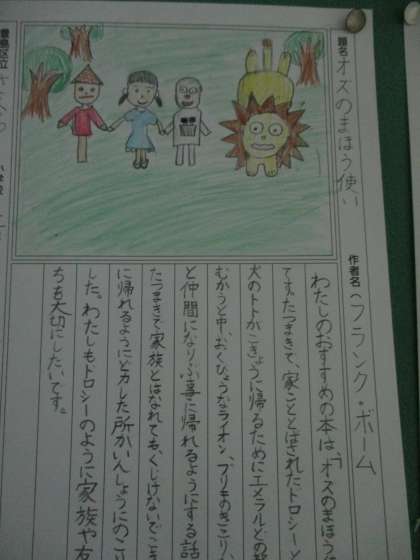 題名 オズのまほう使い
作者名(フランク・ボーム
わたしのおすすめの本は、「オズのまほう
です。たつまきで、家ごととばされたドロシーと
犬のトトがこきょうに帰るためにエメラルドの
むかうと中、おくびょうなライオン、ブリキのきこり、
と仲間になりぶ事に帰れるようにする話
たつまきで家族とはなれても、くじけないでこ
に帰れるようにど力した所がいんしょうにのこ
した。わたしもドロシーのように家族や友
ちも大切にしたいです。
豊島区立